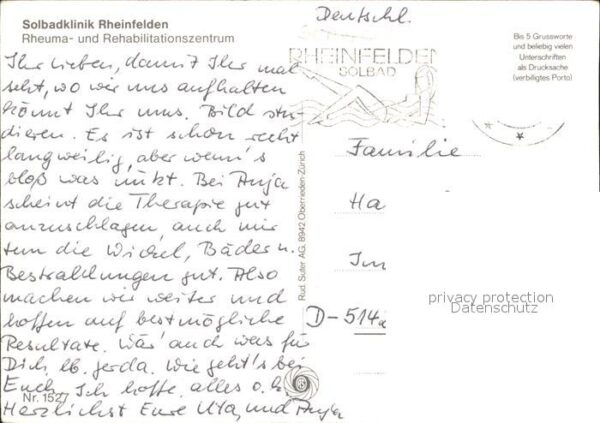 Solbadklinik Rheinfelden
Rheuma- und Rehabilitationszentrum
Ihr Lieben, damit Ihr mal
seht, wo wir uns aufhalten
könnt Ihr uns. Bild stu-
dieren. Es ist schon recht
langweilig, aber wenn's
bloß was nützt. Bei Anja
scheint die Therapie gut
anzuschlagen, auch mir
tun die Wickel, Bäder u.
Bestrahlungen gut. Also
machen wir weiter und
hoffen auf bestmögliche
Resultate. Wär' auch was für
Dich, lb. Gerda. Wie geht's bei
Euch. Ich hoffe, alles o.k.
Herzlichst Eure Uta, und Anja
Nr. 1527
Rud. Suter AG, 8942 Oberrieden-Zürich
Deutschl.
RHEINFELDEN
SOLBAD
Bis 5 Grussworte
und beliebig vielen
Unterschriften
als Drucksache
(verbilligtes Porto)
Familie
Ha
Im
D-514
privacy protection
Datenschutz